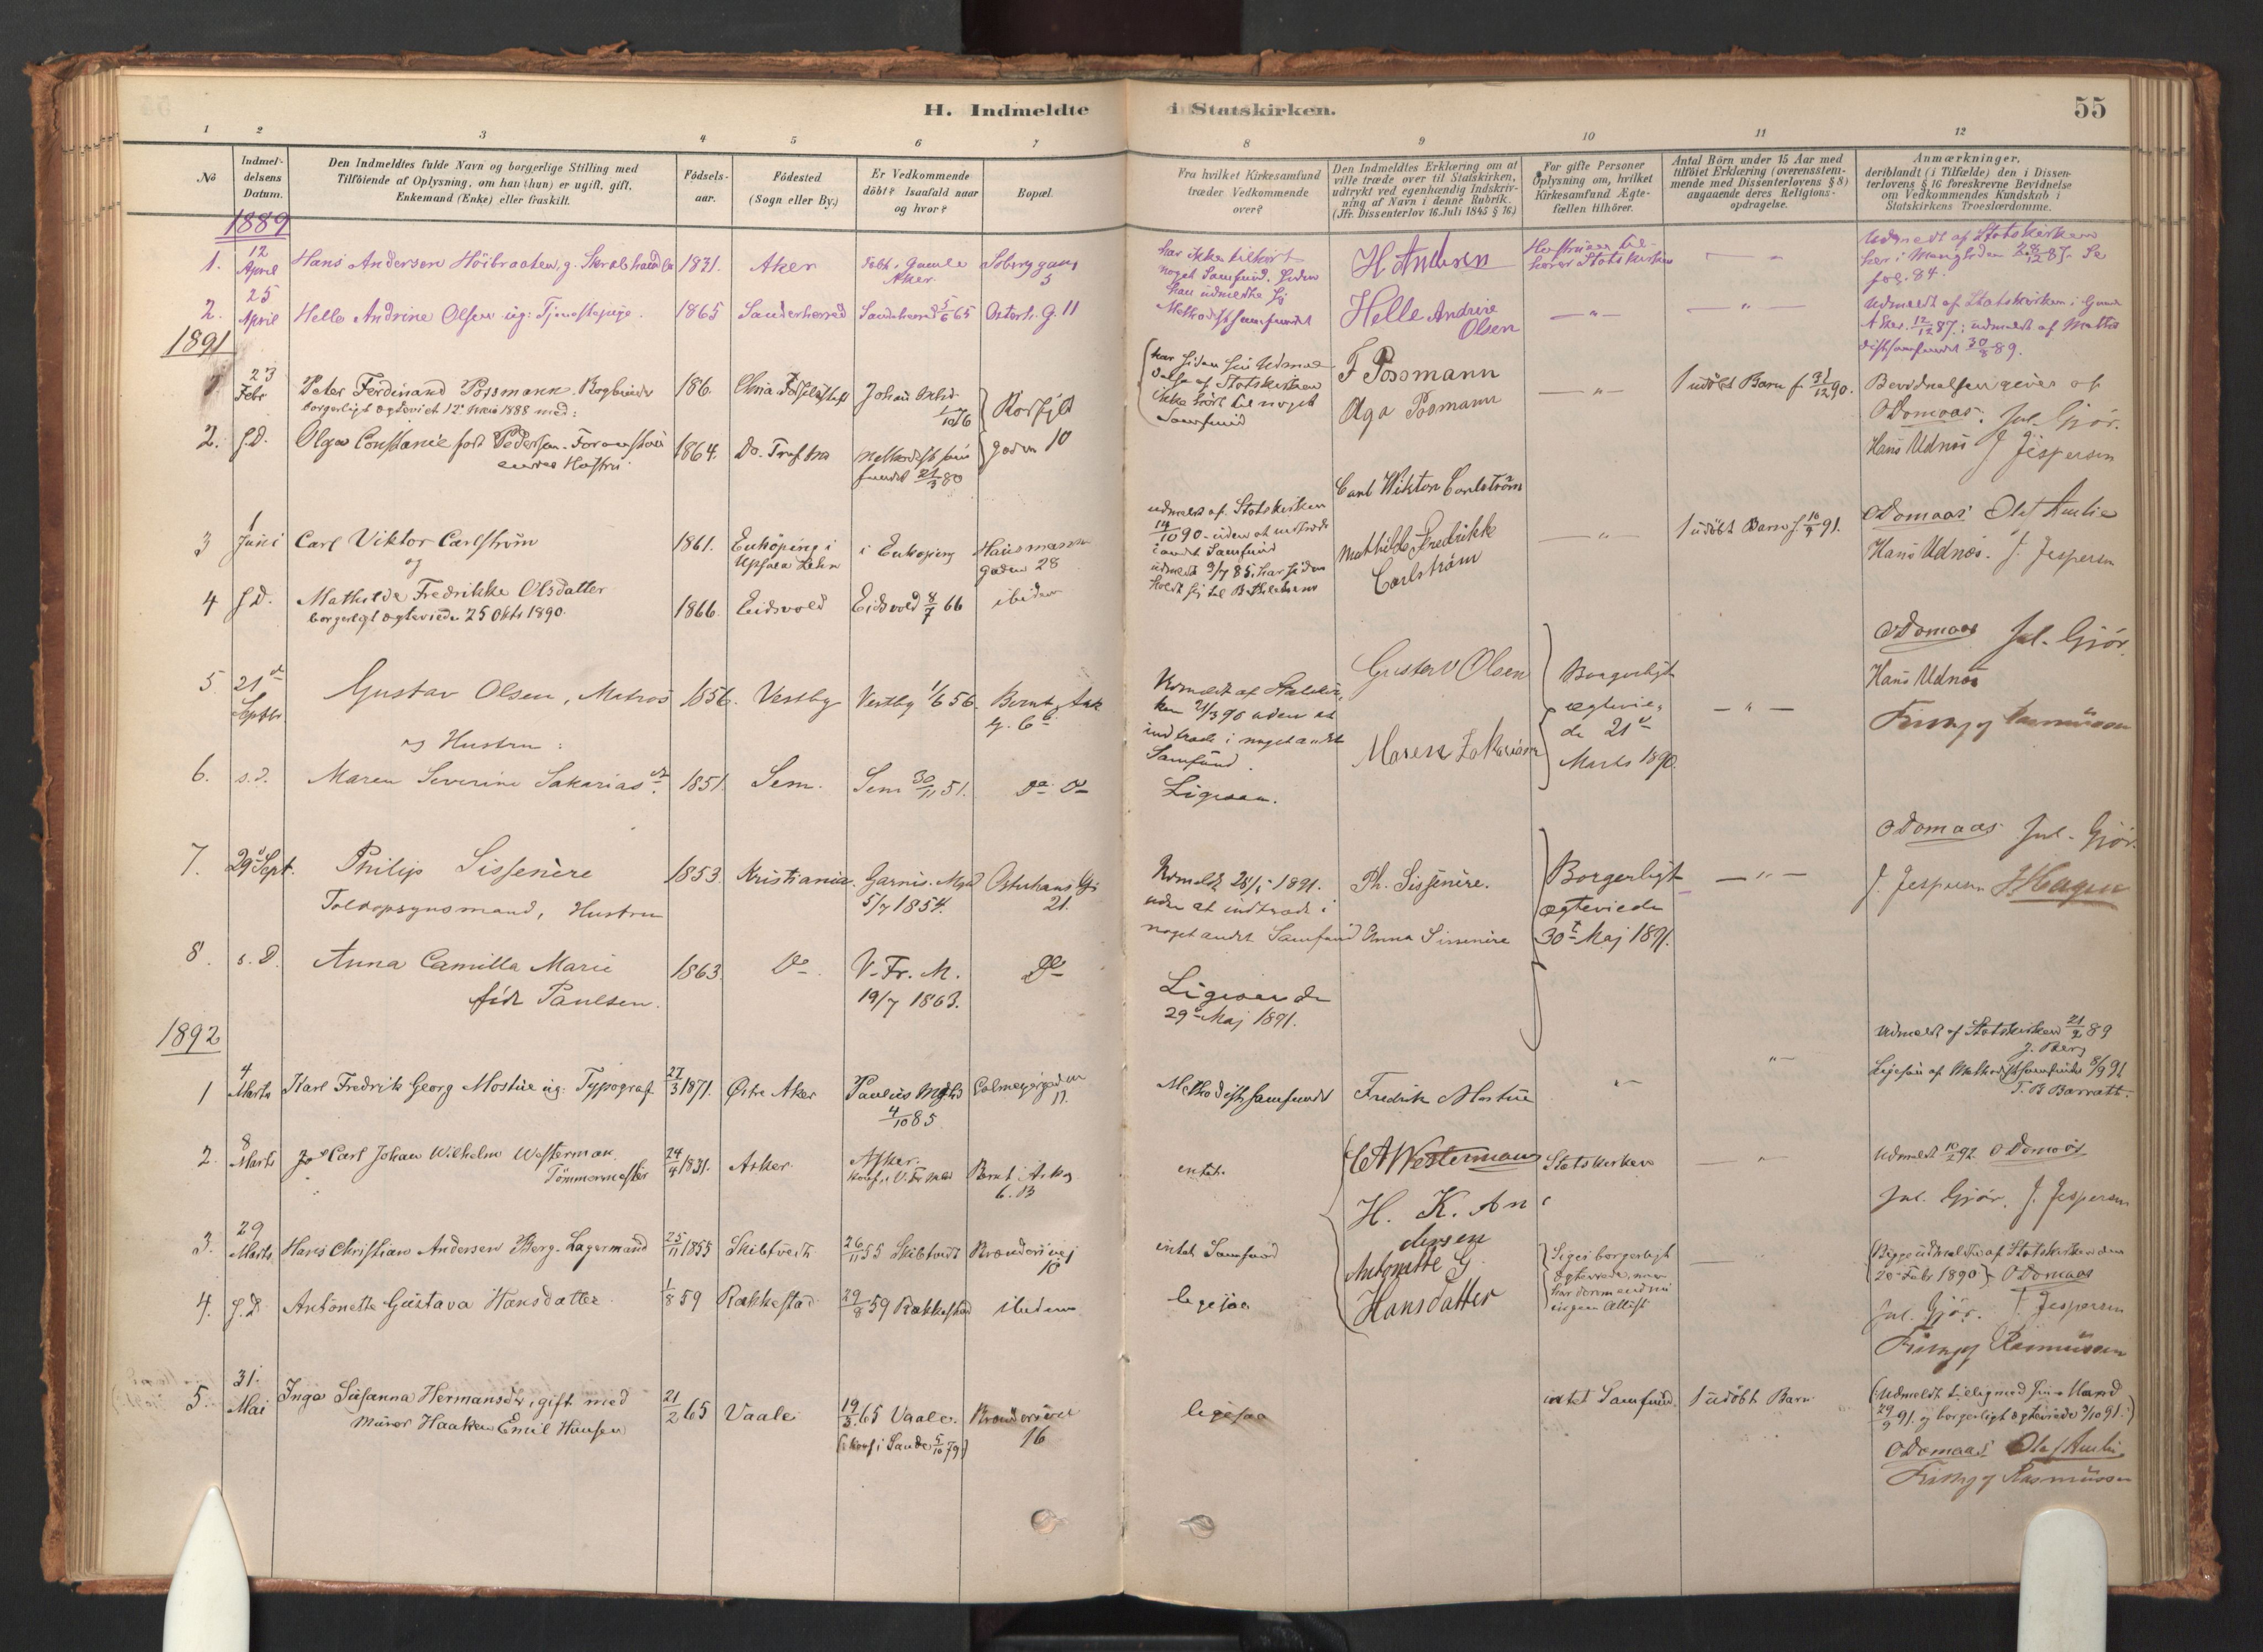 H. Indmeldte i Statskirken.
55
1 2 3 4 5 6 7 8 9 10 11 12
No
Indmel-
delsens
Datum.
Den Indmeldtes fulde Navn og borgerlige Stilling med
Tilföiende af Oplysning, om han (hun) er ugift, gift,
Enkemand (Enke) eller fraskilt.
Födsels-
aar.
Födested
(Sogn eller By.)
Er Vedkommende
döbt? Isaafald naar
og hvor?
Bopæl.
Fra hvilket Kirkesamfund
træder Vedkommende
over?
Den Indmeldtes Erklæring om at
ville træde over til Statskirken,
udtrykt ved egenhændig Indskriv-
ning af Navn i denne Rubrik.
(Jfr. Dissenterlov 16. Juli 1845 § 16.)
For gifte Personer
Oplysning om, hvilket
Kirkesamfund Ægte-
fællen tilhörer.
Antal Börn under 15 Aar med
tilföiet Erklæring (overensstem-
mende med Dissenterlovens § 8)
angaaende deres Religions-
opdragelse.
Anmærkninger,
deriblandt (i Tilfælde) den i Dissen-
terlovens § 16 foreskrevne Bevidnelse
om Vedkommendes Kundskab i
Statskirkens Troeslærdomme.
1889
1. 12 April Hans Andersen Höibraaten, g. 1831. Aker Gamle Aker 5
har ikke tilhört
noget Samfund. Siden
han udmeldte sig
H Andersen
Hustruen til-
hører Statskirken
Udmeldt af Statskirken
her i Menigheden 87. Se
fol. 84.
2. 25 April Helle Andrine Olsen ug. Tjenestepige. 1865 Sandeherred Sandeherred 5/6 65 Osterh. G. 11
Methodistsamfundet
Helle Andrine
Olsen
Udmeldt af Statskirken i Gamle
Aker 12/12 87; udmeldt af Metho
distsamfundet 30/8 89.
1891
1 23 Febr Peter Ferdinand Possmann Bogbinder 186
borgerligt ægteviet 12 1888 med:
Korsfjeld
gaden 10
har siden sin Udmel
delse af Statskirken
ikke hört til noget
Samfund
F Possmann
Olga Posmann
1 udöbt Barn f. 31/12 90.
Bevidnelsen gives af
O Domaas. Jul. Gjör.
Hans Udnæs J Jespersen
2. s.D. Olga Constance født Pedersen. Foranstaa
endes Hustru
1864. Do. Methodistsam
fundet 21/3 80
3 1 Juni Carl Viktor Carlström 1861. Enköping i
Upsala Lehn i Enköping Hausmanns
gaden 28
og
udmeldt af Statskirken
14/10 90 uden at indtræde
i andet Samfund
Carl Wiktor Carlström
Mathilde Fredrikke
Carlström
1 udöbt Barn f. 10/4 91.
O Domaas Olaf Amlie
Hans Udnæs. J. Jespersen
4 s.D. Mathilde Fredrikke Olsdatter
borgerligt ægteviede 25 Okt 1890.
1866. Eidsvold Eidsvold 8/7 66 ibidem
udmeldt 9/7 85, har siden
holdt sig til
5. 21de Septbr. Gustav Olsen, Matros 1856. Vestby Vestby 1/6 56. Bernt Ank
g. 6 b.
og Hustru:
Udmeldt af Statskir
ken 21/3 90 uden at
indtræde i noget andet
Samfund.
Gustav Olsen
Maren Zakariasen
Borgerligt
ægtevie
de 21de
Marts 1890.
O Domaas Jul. Gjör.
Hans Udnæs
Rasmussen
6. s.d. Maren Severine Sakariasdr. 1851. Sem. Sem 30/11 51. do do
Ligesaa.
7. 29de Sept. Philip Sissenère 1853. Kristiania Garnis. Mgd
5/7 1854. 21.
Toldopsynsmand, Hustru
Udmeldt 28/5 1891.
uden at indtræde i
noget andet Samfund
Ph. Sissenère.
Anna Sissenère
Borgerligt
ægteviede
30te Maj 1891.
O Domaas Jul. Gjör.
J. Jespersen J Hagen
8. s.D. Anna Camilla Marie
född Paulsen.
1863. Do V. Fr. M.
19/7 1863. Do
Ligesaa den
29de Maj 1891.
1892
1 4 Marts Karl Fredrik Georg Mostue ug. Typograf 27/3 1871. Østre Aker Paulus Mghd
4/10 85 Calmeyergaden
11.
Methodistsamfundet
Fredrik Mostue
Udmeldt af Statskirken 21/2 89
J. Berg
Ligesaa af Methodistsamfundet 8/9 91
T. B Barratt.
2. 8 Marts Carl Johan Wilhelm Westerman
Tömmermester
24/4 1831. Asker Asker.
Konf. i V. Fr. Mgd Bernt Ankg
6. B
intet.
C A Westermann
Statskirken
Udmeldt 10/2 92. O Domaas
Jul. Gjör. J. Jespersen
3. 29 Marts Hans Christian Andersen Berg. Lagermand 25/11 1855 Skibtvedt 26/11 55 Skibtvedt Brænderivej
10
intet Samfund
H. K. An
dersen
Siges borgerligt
ægteviede, men
har derom endnu
ingen Attest
Begge udmeldte af Statskirken den
20 Febr 1890. O Domaas
Jul. Gjör. J. Jespersen
Rasmussen
4. s.D. Antonette Gustava Hansdatter 1/8 59 Rakkestad 29/8 59 Rakkestad ibidem
ligesaa
Antonette G
Hansdatter
5. 31. Mai Inga Susanna Hermansdr, gift med
Murer Haaken Emil Hansen
21/2 65 Vaale 19/3 65 Vaale.
(konf. i Sande 5/10 79) 16
ligesaa
intet Samfund.
1 udöbt Barn
(Udmeldt tilligemed sin Mand
29/9 91. og borgerligt ægteviede 3/10 91.)
O Domaas Olaf Amlie.
Rasmussen